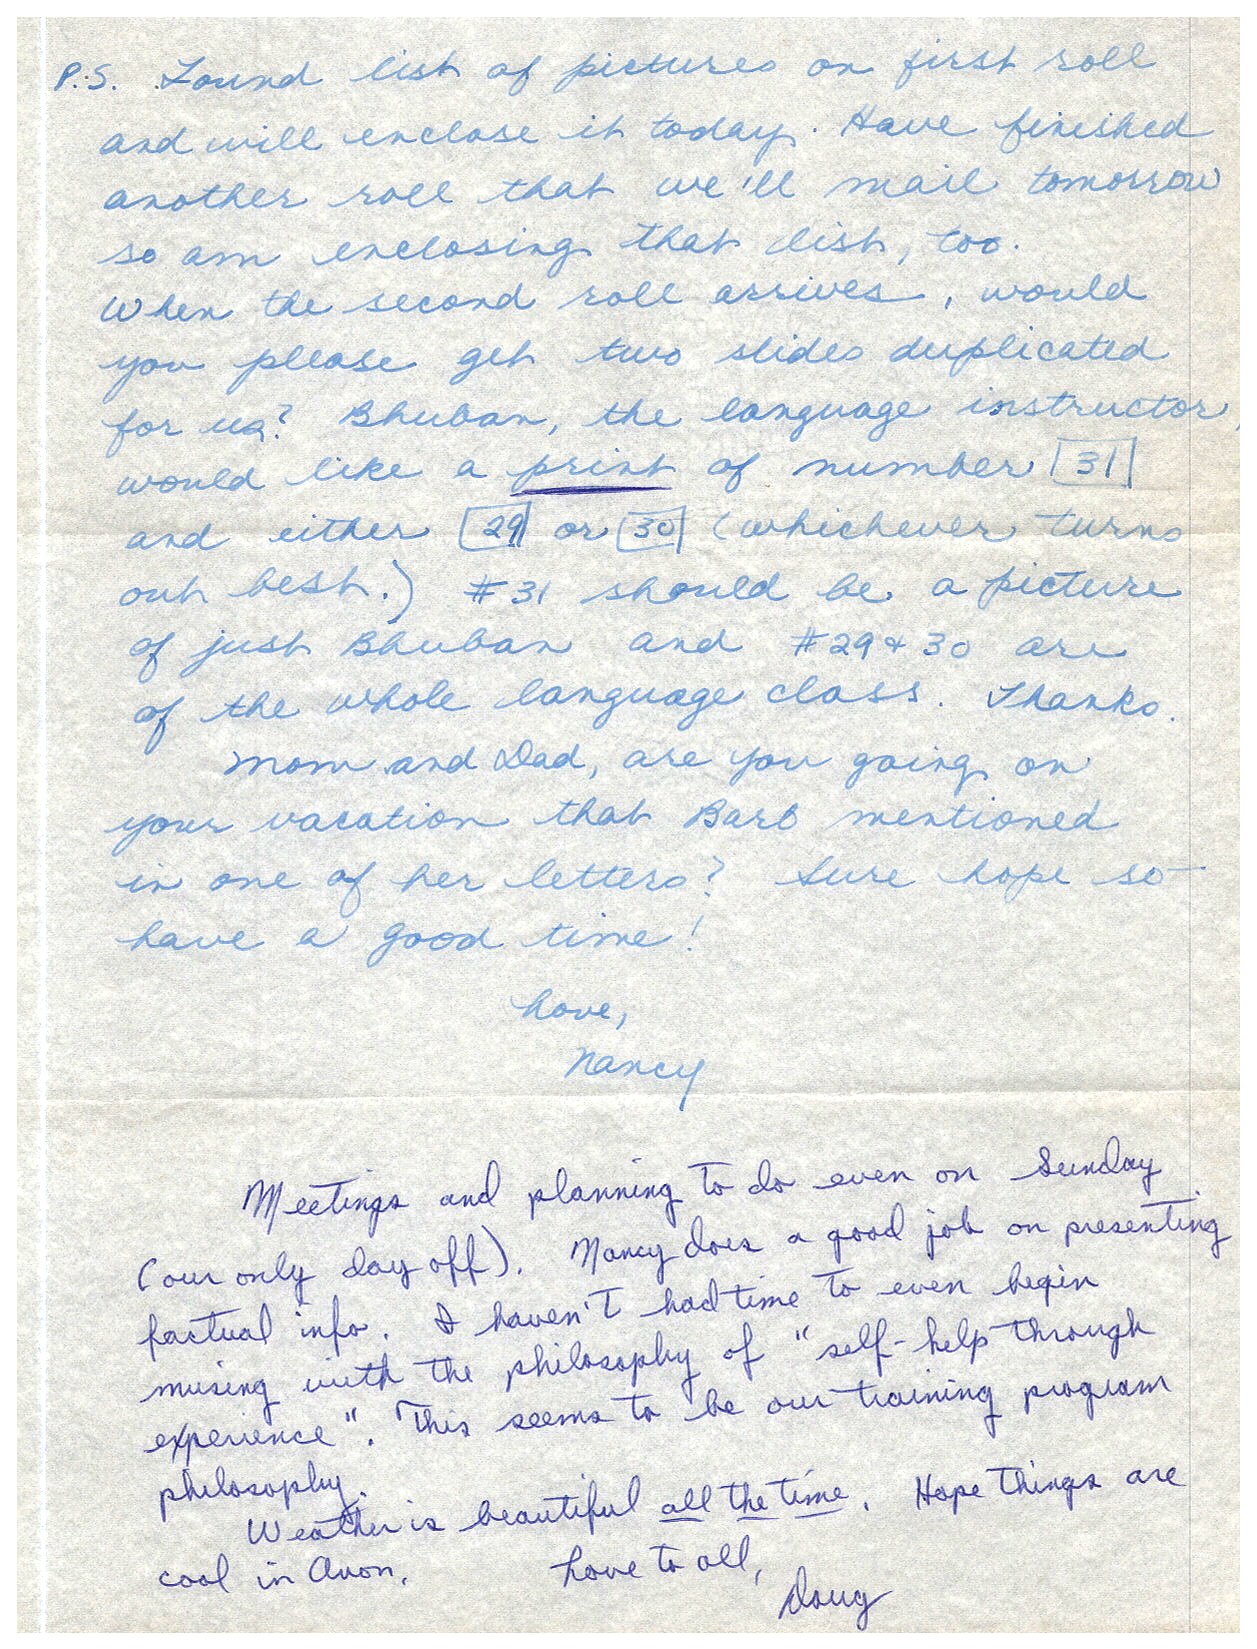 P.S. Found list of pictures on first roll
and will enclose it today. Have finished
another roll that we'll mail tomorrow
so am enclosing that list, too.
When the second roll arrives, would
you please get two slides duplicated
for us? Bhuban, the language instructor,
would like a print of number 31
and either 29 or 30 (whichever turns
out best.) #31 should be a picture
of just Bhuban and #29 & 30 are
of the whole language class. Thanks.
Mom and Dad, are you going on
your vacation that Barb mentioned
in one of her letters? Sure hope so -
have a good time!
Love,
Nancy
Meetings and planning to do even on Sunday
(our only day off). Nancy does a good job on presenting
factual info. I haven't had time to even begin
musing with the philosophy of "self-help through
experience". This seems to be our training program
philosophy.
Weather is beautiful all the time. Hope things are
cool in Avon.
Love to all,
Doug